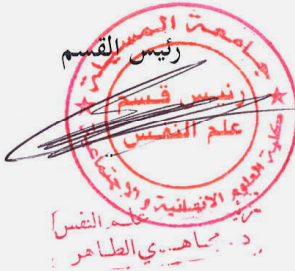 رئيس القسم
جامعة المسيلة
رئيس قسم
علم النفس
كلية العلوم الإنسانية و الاجتماعية
علم النفس
د. مجاهدي الطاهر